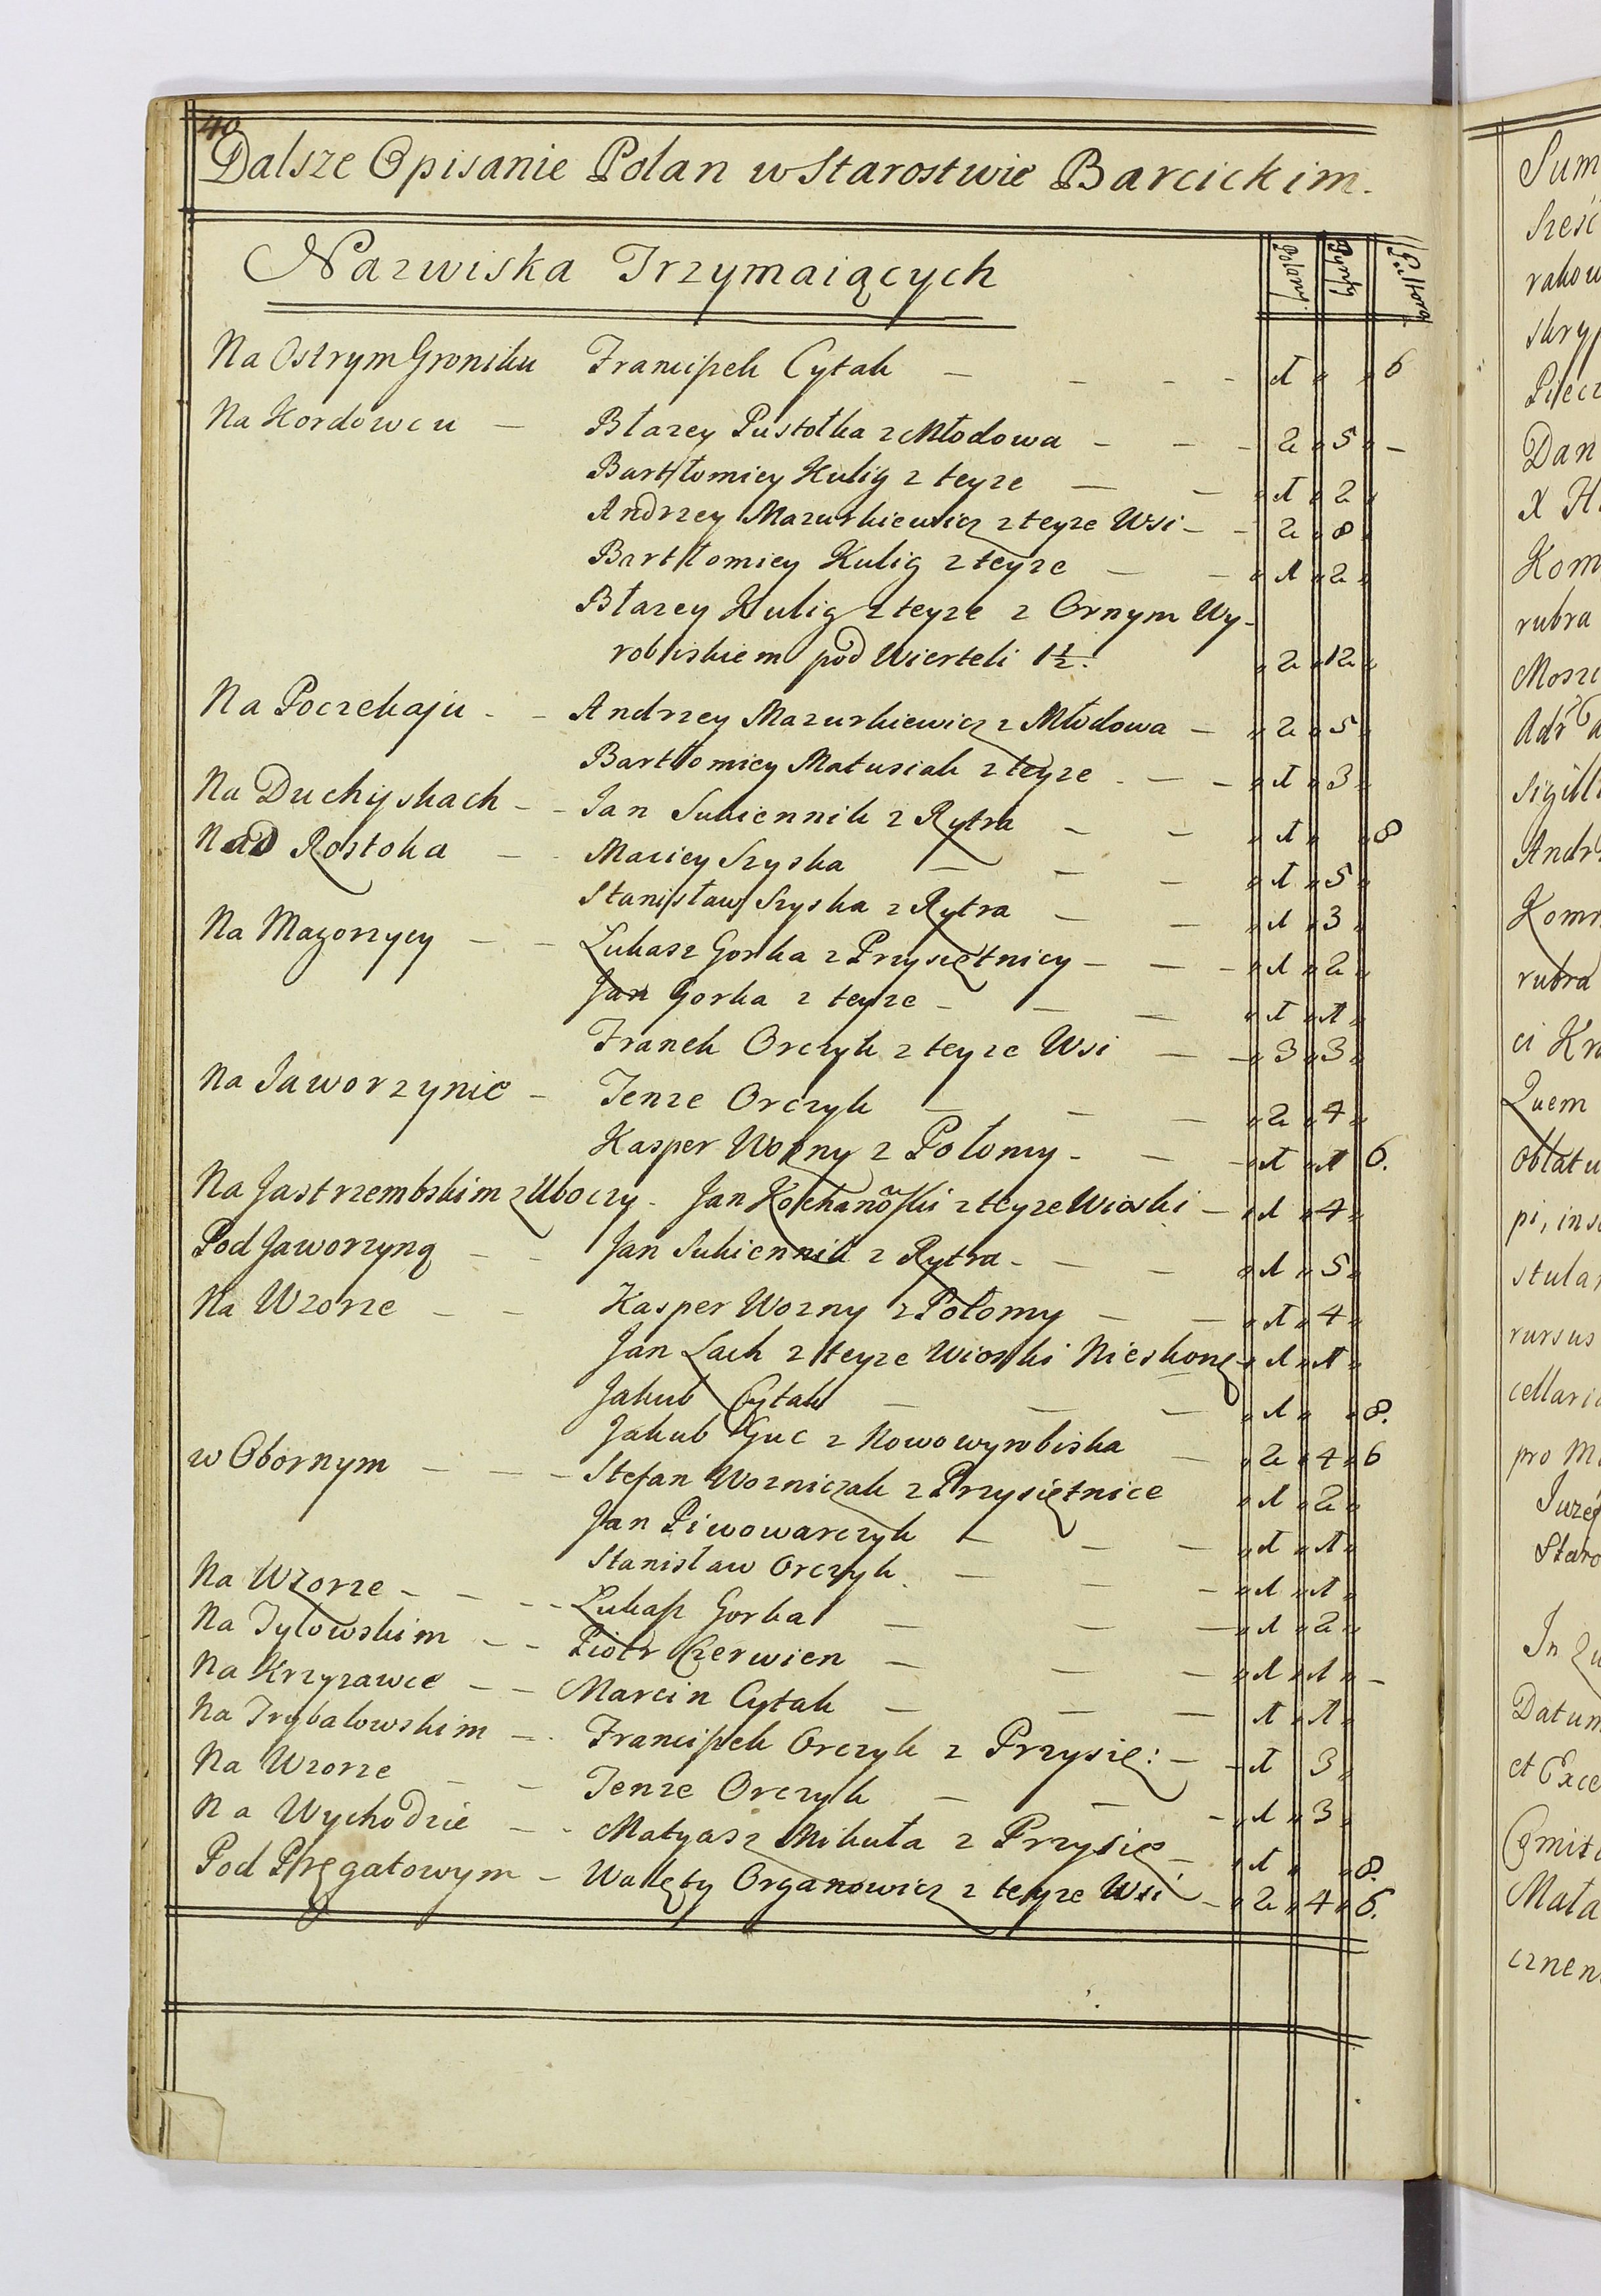 40
Dalsze Opisanie Polan w Starostwie Barcickim.
Nazwiska Trzymaiących
Na Ostrym Groniku Franciszek Cytak — - - - 1 „ „ 6
Na Kordowcu — Błazey Pustołka z Młodowa - - - 2 „ 5 „ -
Bartłomiey Kulig z teyze — - „ 1 „ 2 „
Andrzey Mazurkiewicz z teyze Wsi - - 2 „ 8 „
Bartłomiey Kulig z teyze — - „ 1 „ 2 „
Błazey Kulig z teyze z Ornym Wy-
robiskiem pod Wierteli 1½. „ 2 „ 12 „
Na Poczekaju - - Andrzey Mazurkiewicz z Młodowa - „ 2 „ 5 „
Bartłomiey Matusiak z teyze - - - „ 1 „ 3 „
Na Duchyskach - - Jan Sukiennik z Rytra - - „ 1 „ „ 8
Nad Rostoka - - Maciey Szyska - - - „ 1 „ 5 „
Stanisław Szyska z Rytra - - „ 1 „ 3 „
Na Magorzycy - - Łukasz Gorka z Przysiętnicy - - - „ 1 „ 2 „
Jan Gorka z teyze - - - „ 1 „ 1 „
Franek Orczyk z teyze Wsi - - „ 3 „ 3 „
Na Jaworzynie - Tenze Orczyk - - - „ 2 „ 4 „
Kasper Wozny z Połomy - - - „ 1 „ 1 6.
Na Jastrzembskim z Uboczy - Jan Kochanoski z teyze Wioski - „ 1 „ 4 „
Pod Jaworzyną - - Jan Sukiennik z Rytra - - - „ 1 „ 5 „
Na Wzorze - - Kasper Wozny z Połomy - - „ 1 „ 4 „
Jan Lach z teyze Wioski Nieskonę „ 1 „ 1 „
Jakub Cytak - - - „ 1 „ „ 8.
Jakub Guc z Nowowyrobiska - „ 2 „ 4 „ 6
w Obornym - - - Stefan Wozniczak z Przysiętnice „ 1 „ 2 „
Jan Piwowarczyk - - - „ 1 „ 1 „
Stanisław Orczyk - - - „ 1 „ 1 „
Na Wzorze - - - - Łukasz Gorka - - - „ 1 „ 2 „
Na Tylowskim - - Piotr Czerwien - - - „ 1 „ 1 „ -
Na Krzyzawce - - Marcin Cytak - - - 1 „ 1 „
Na Trybalowskim - - Franciszek Orczyk z Przysię: - - 1 3 „
Na Wzorze - - Tenze Orczyk - - - „ 1 „ 3 „
Na Wychodzie - - Matyasz Mikuła z Przysię - „ 1 „ „ 8.
Pod Pręgatowym - Walęty Organowicz z teyze Wsi - „ 2 „ 4 „ 6.
Sum
Sześć
rakow
skryp
Piecz
Dan
X H
Kom
rubra
Mosz
Adr
sigill
Andr
Kom
rubra
ci Kra
Quem
oblatu
pi, ins
stular
rursus
cellari
pro M
Juzef
Staro
In
Datum
et Exce
Comit
Mała
cznen